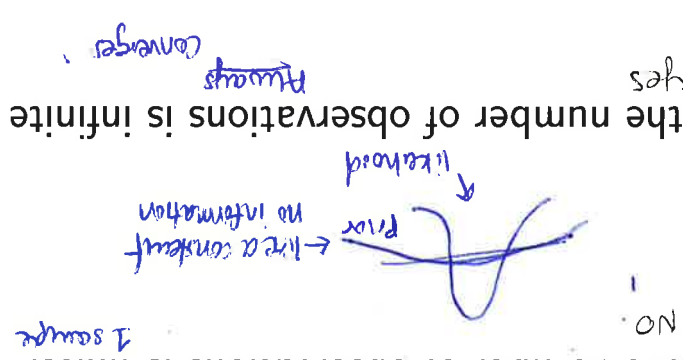 NO.
1 sample
Prior ← like a constant
no information
likelihood
the number of observations is infinite
yes
Always
Converges.